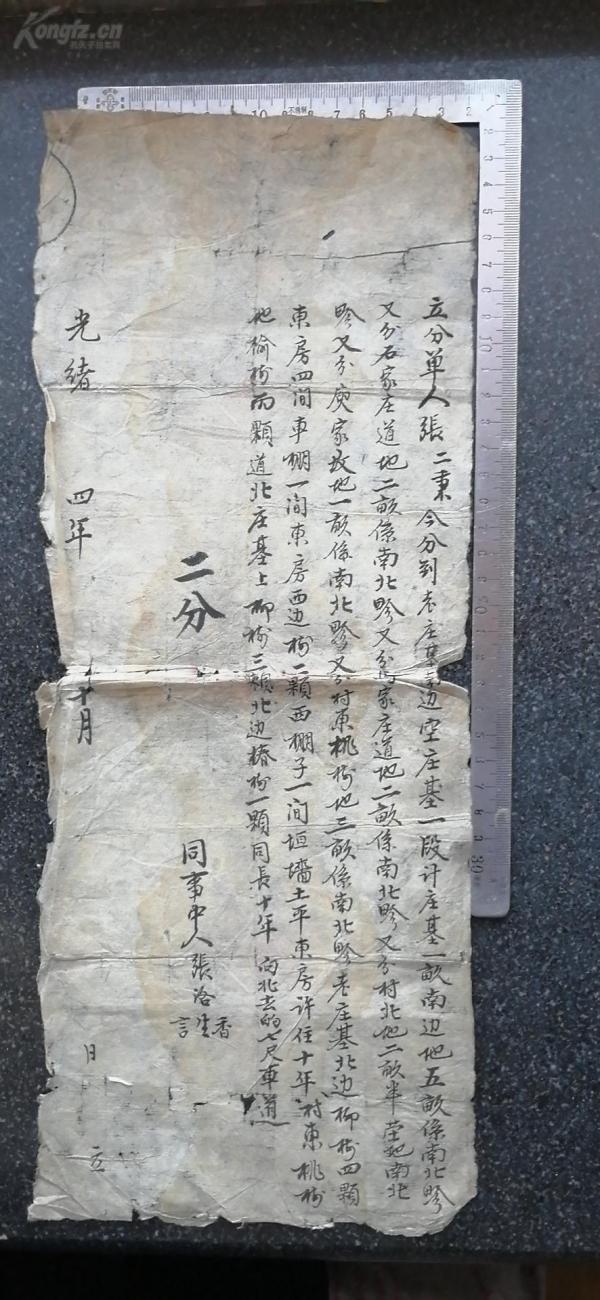 立分单人張二秉今分到老庄基南边空庄基一段计庄基一畝南边地五畝係南北畛
又分石家庄道地二畝係南北畛又分家庄道地二畝係南北畛又分村北地二畝半茔地南北
畛又分庾家坟地一畝係南北畛又分村東桃樹地三畝係南北畛老庄基北边柳樹四顆
東房四间車棚一间東房西边樹二顆西棚子一间垣墻土平東房许住十年村東桃樹
地榆樹两顆道北庄基上柳樹三顆北边椿樹一顆同長十年向北去的七尺車道
二分
同事中人張洛香
生
言
光緒四年十月日立
Kongfz.cn
孔夫子旧书网